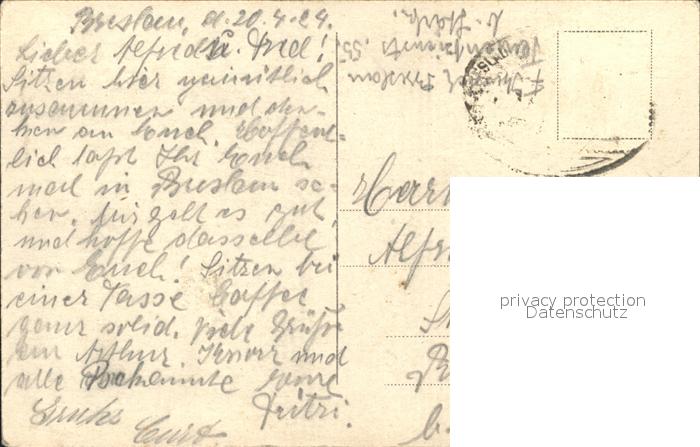 Breslau, d. 20.4.24.
Lieber Alfred u. Trud!
Sitzen hier gemütlich
zusammen und den-
ken an Euch. Hoffent-
lich laßt Ihr Euch
mal in Breslau se-
hen. Mir geht es gut
und hoffe dasselbe
von Euch! Sitzen bei
einer Tasse Caffee
ganz solid. Viele Grüße
an Arthur, und
alle Bekannte Eure
Fritzi.
Curt
Breslau
Herr
Alfr
privacy protection
Datenschutz